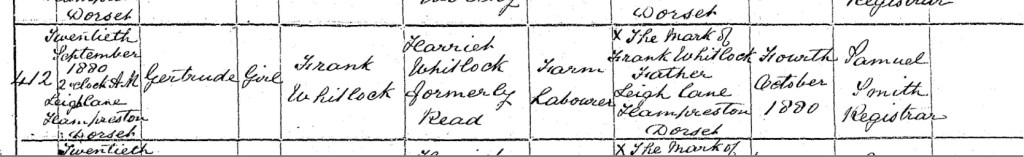 Dorset
Dorset
Registrar
412
Twentieth
September
1880
2 o'clock A.M
Leigh Lane
Hampreston
Dorset
Gertrude
Girl
Frank
Whitlock
Harriet
Whitlock
formerly
Read
Farm
Labourer
X The Mark of
Frank Whitlock
Father
Leigh Lane
Hampreston
Dorset
Fourth
October
1880
Samuel
Smith
Registrar
Twentieth
X The Mark of